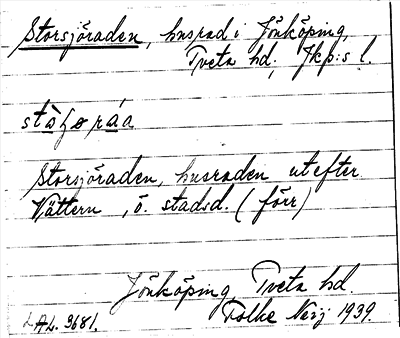 Storsjöraden, husrad i Jönköping,
Tveta hd., Jkp:s l.
Storsjöraden, husraden utefter
Vättern, ö. stadsd. (förr)
Jönköping, Tveta hd.
LAL. 3681. Folke Neij 1939.